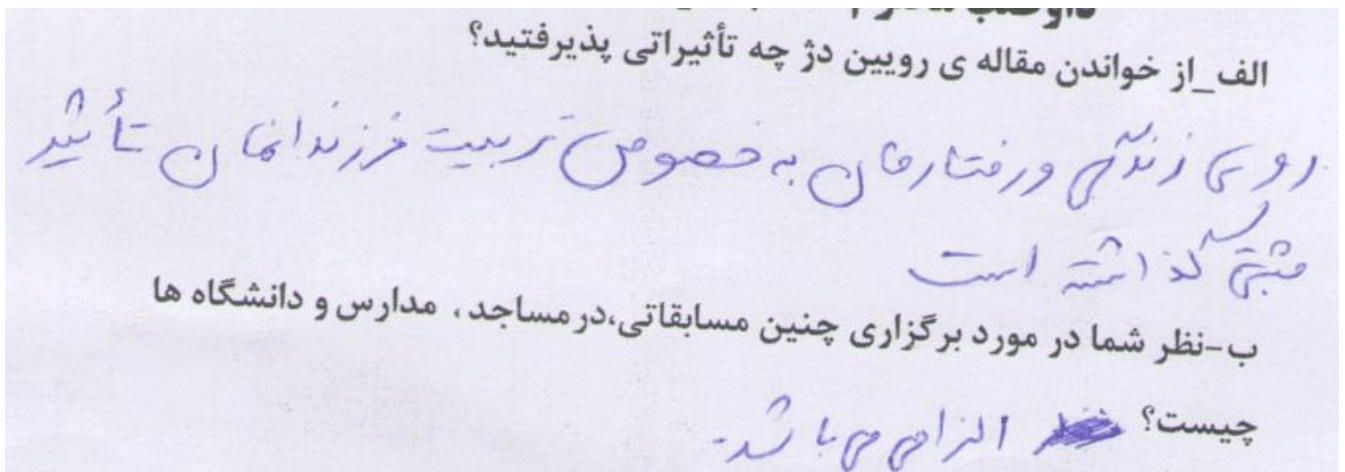 الف_از خواندن مقاله ی رویین دژ چه تأثیراتی پذیرفتید؟
روی زندگی و رفتارمان به خصوص تربیت فرزندانمان تأثیر
مثبتی گذاشته است
ب-نظر شما در مورد برگزاری چنین مسابقاتی،در مساجد، مدارس و دانشگاه ها
چیست؟ الزامی می باشد.